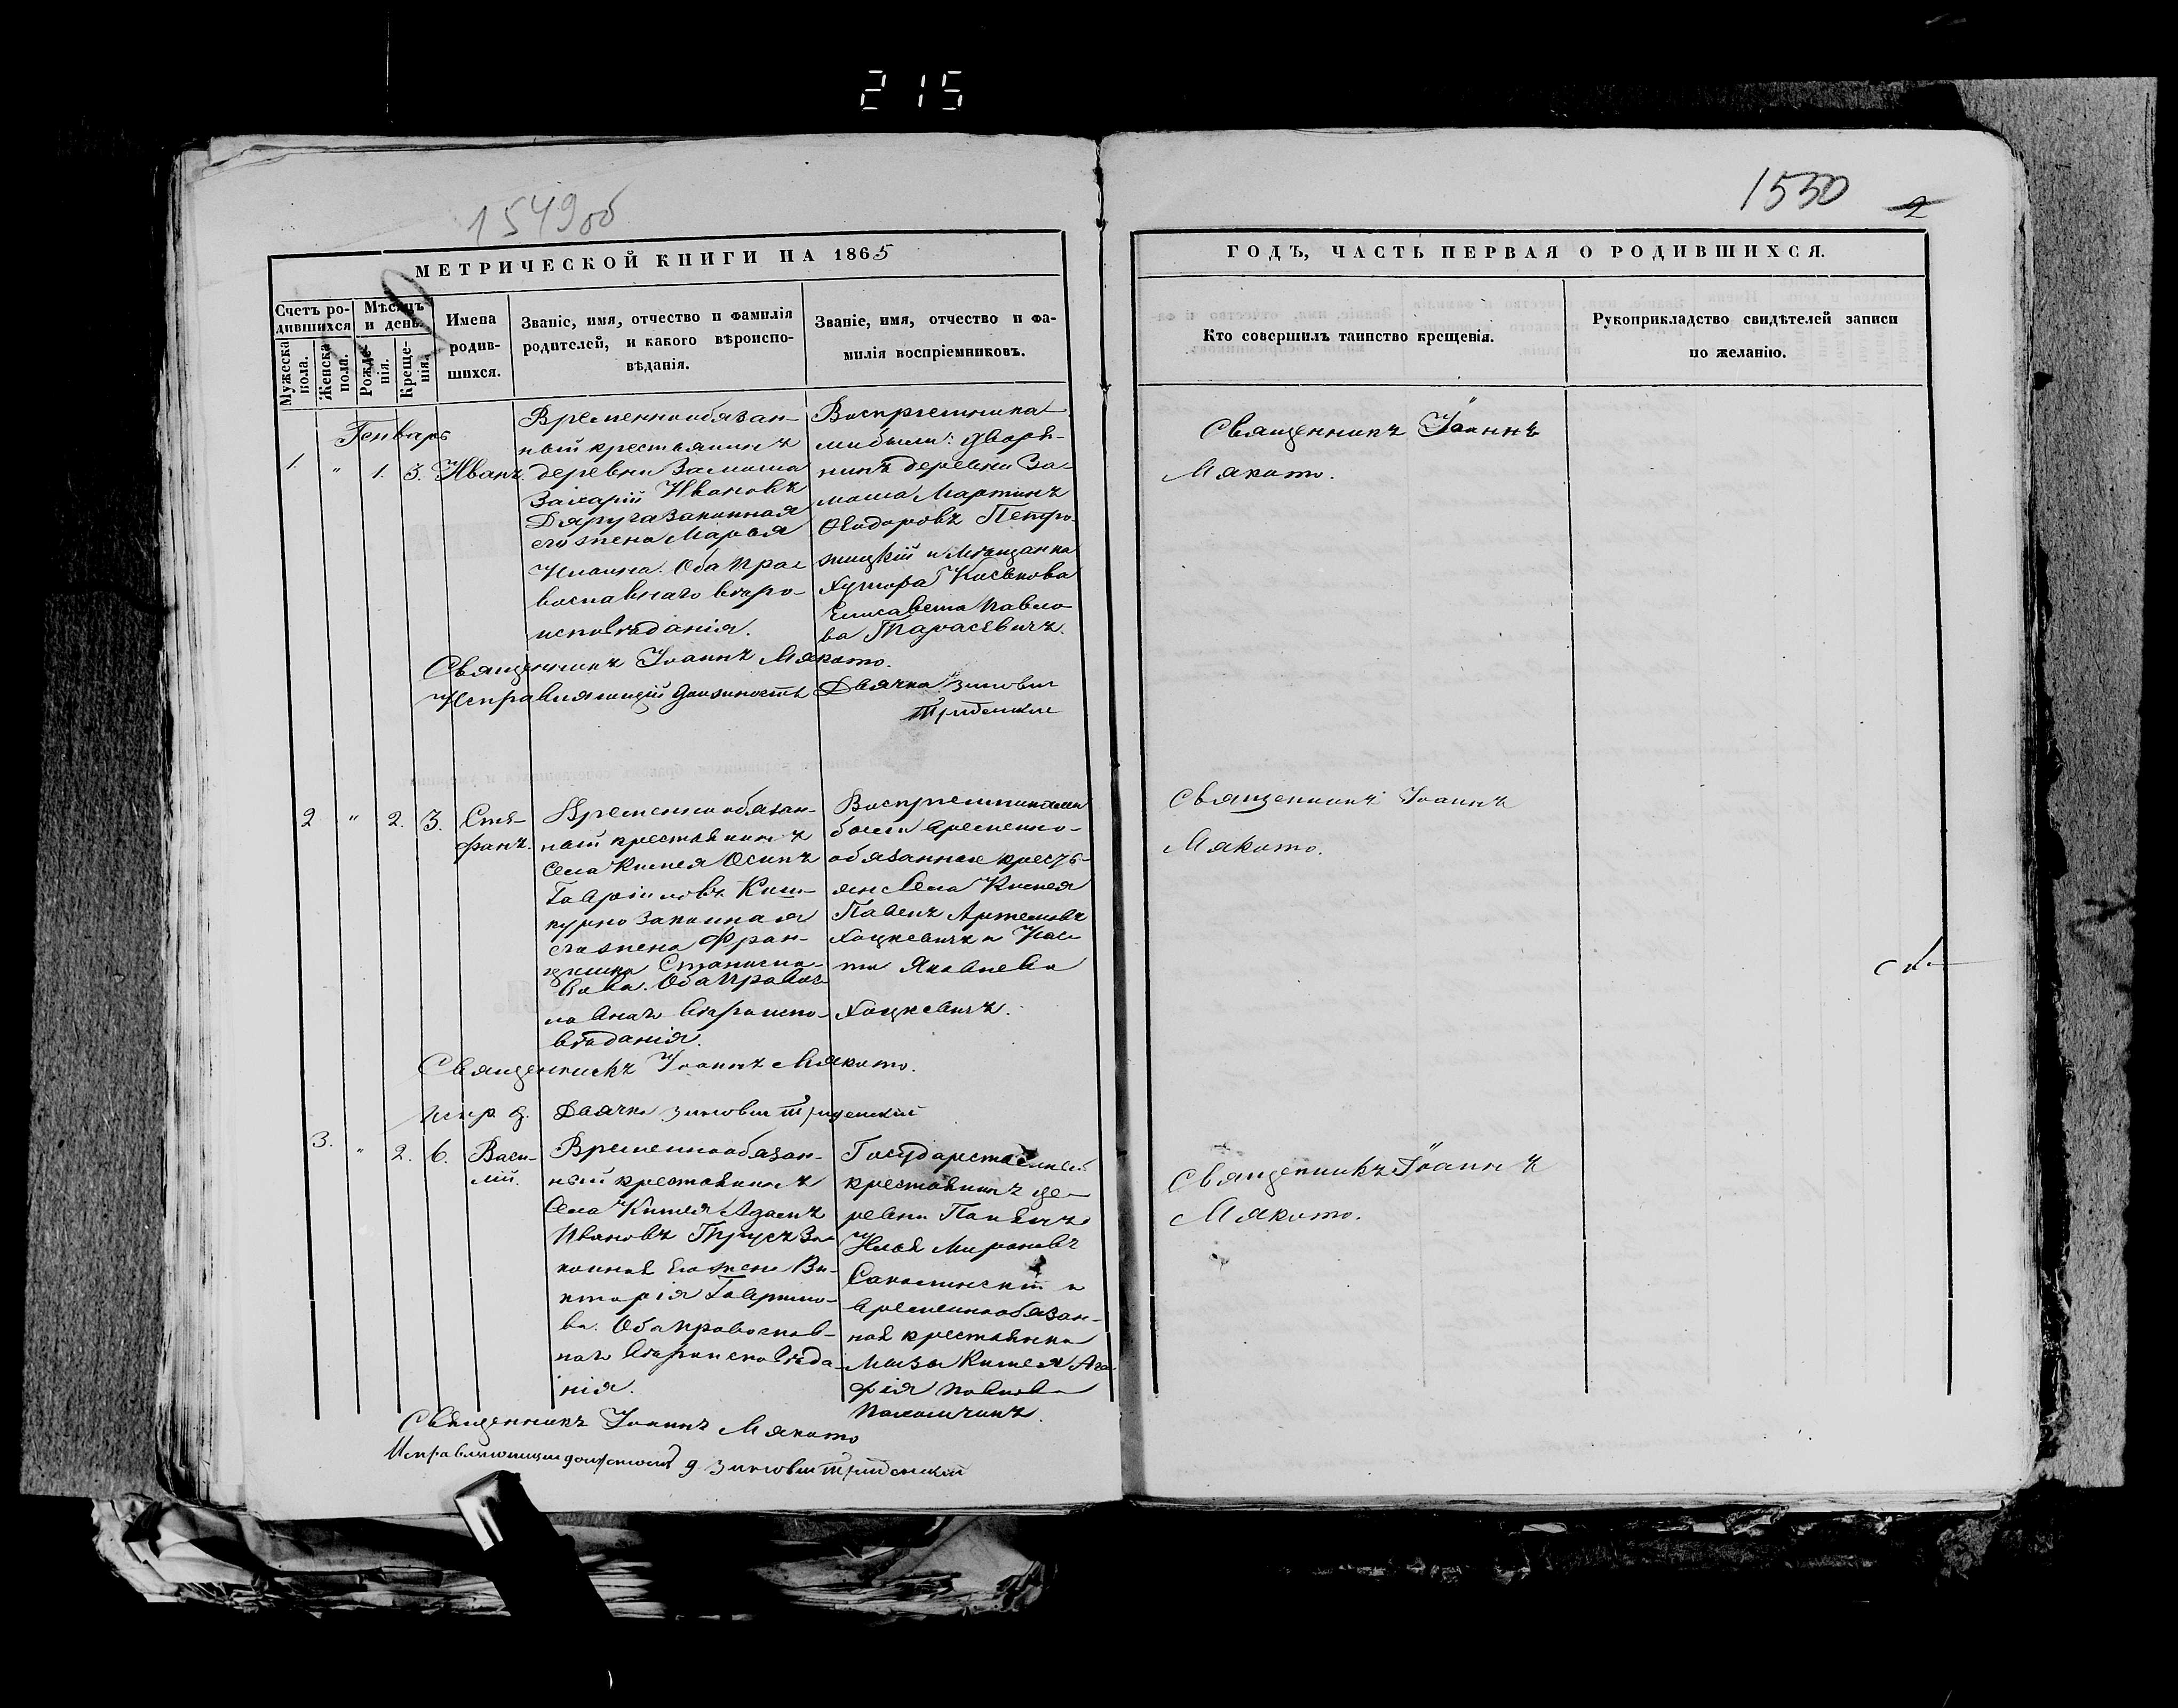 215
1549об
1550
2
МЕТРИЧЕСКОЙ КНИГИ НА 1865
ГОДЪ, ЧАСТЬ ПЕРВАЯ О РОДИВШИХСЯ.
Счетъ родившихся
Мужеска пола.
Женска пола.
Мѣсяцъ и день.
Рожденія.
Крещенія.
Имена родившихся.
Званіе, имя, отчество и фамилія
родителей, и какого вѣроиспо-
вѣданія.
Званіе, имя, отчество и фа-
милія воспріемниковъ.
Кто совершилъ таинство крещенія.
Рукоприкладство свидѣтелей записи
по желанію.
Генварь
1. " 1. 3. Иванъ.
Временнообязан-
ный крестьянинъ
деревни Замоша
Захарій Ивановъ
Дяруга законная
его жена Марья
Ильина. Оба пра-
вославнаго вѣро-
исповѣданія.
Воспріемника-
ми были: дворя-
нинъ деревни За-
моша Мартинъ
Ѳеодоровъ Петро-
жицкій и Мѣщанка
Хутора
Елисавета Павло-
ва Тарасевичъ.
Священникъ Іоаннъ
Мякото.
Священникъ Іоаннъ Мякото.
Исправляющій должность Дьячка Зиновій
2 " 2. 3. Сте-
фанъ.
Временнообязан-
ный крестьянинъ
села Кишея Осипъ
Гавріиловъ Киш-
курно законная
его жена Фран-
цишка Станисла-
вова. Оба Правос-
лавнаго вѣроиспо-
вѣданія.
Воспріемниками
были временно-
обязанные кресть-
яне села Кишея
Павелъ Артемовъ
Хоцкевичъ и
Яковлева
Хоцкевичъ.
Священникъ Іоаннъ
Мякото.
Священникъ Іоаннъ Мякото.
испр. д. Дьячка Зиновій
3. " 2. 6. Васи-
лій.
Временнообязан-
ный крестьянинъ
села Кишея Адамъ
Ивановъ Трусъ За-
конная его жена Ви-
кторія Гаврило-
ва. Оба православ-
наго вѣроисповѣда-
нія.
Государственный
крестьянинъ де-
ревни
Илья Мироновъ
и
временнообязан-
ная крестьянка
Мызы Кишея Ага-
фія Павлова
Священникъ Іоаннъ
Мякото.
Священникъ Іоаннъ Мякото
Исправляющій должность д Зиновій